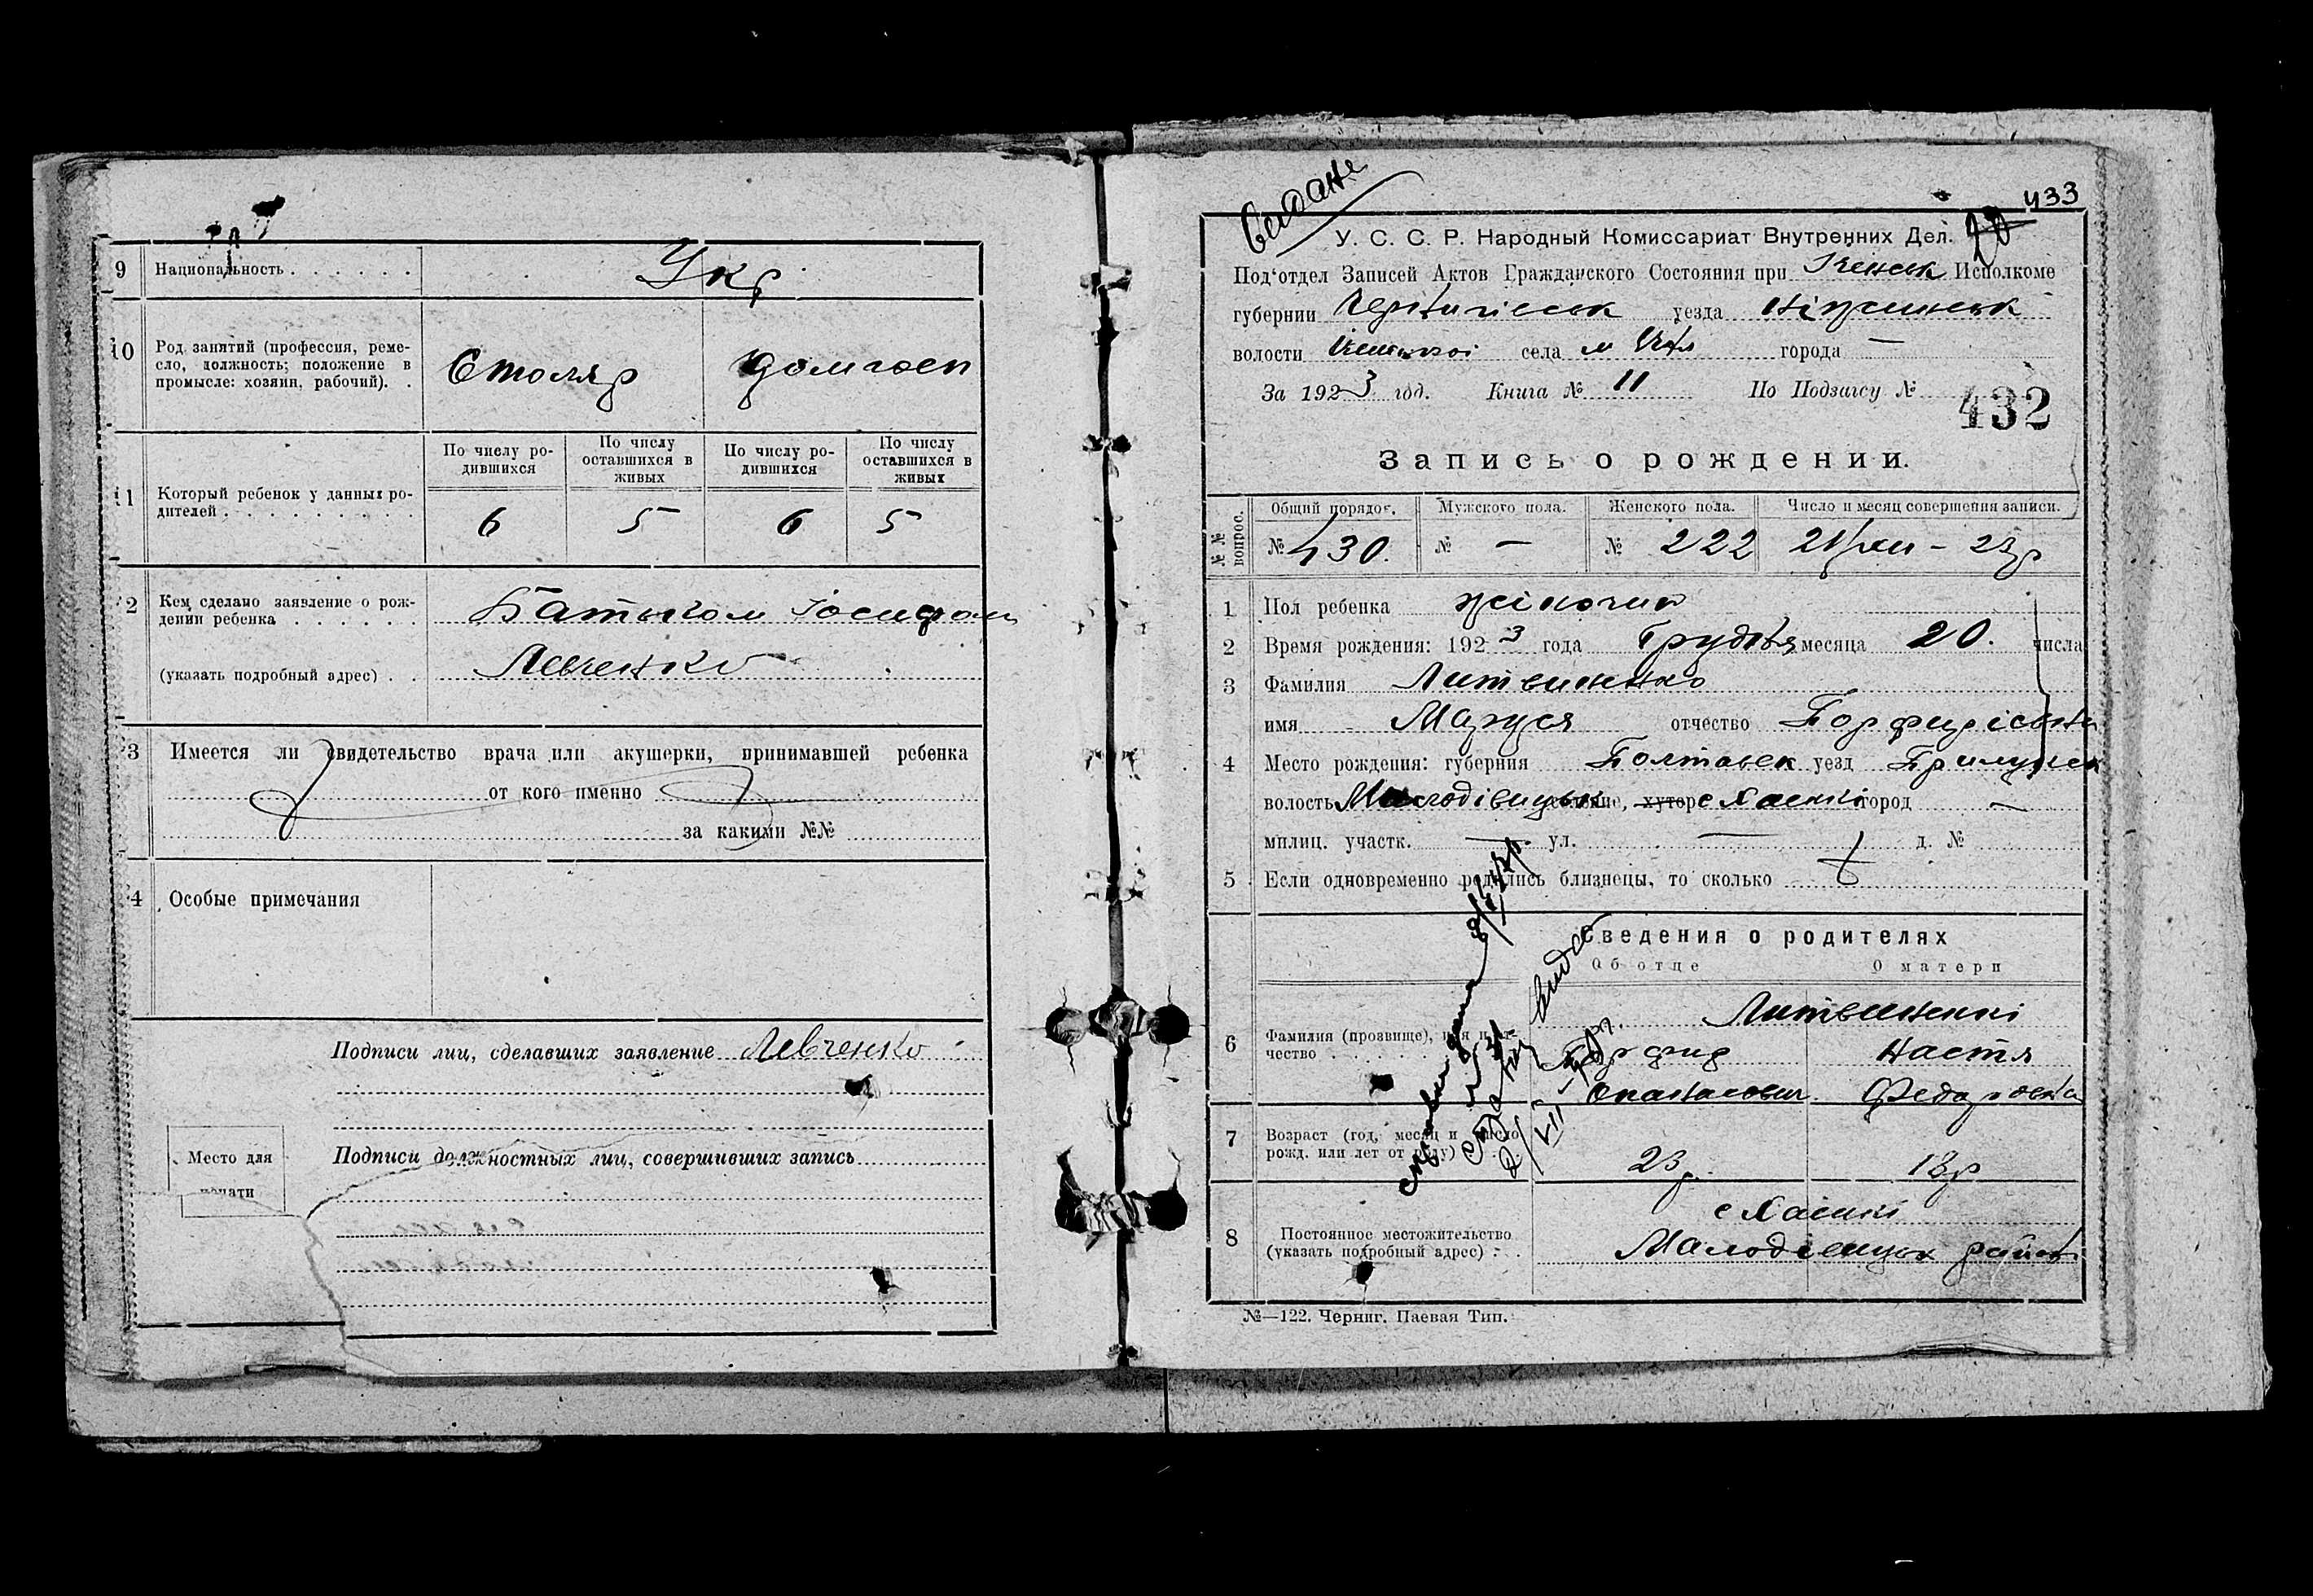 9 Национальность . . . . . . Укр
10 Род занятий (профессия, реме-
сло, должность; положение в
промысле: хозяин, рабочий). .
Столяр домгосп
11 Который ребенок у данных ро-
дителей . . . . . . . . . .
По числу ро-
дившихся
По числу
оставшихся в
живых
По числу ро-
дившихся
По числу
оставшихся в
живых
6 5 6 5
2 Кем сделано заявление о рож-
дении ребенка . . . . . .
(указать подробный адрес) . .
Батьком Іосифом
Левченко
3 Имеется ли свидетельство врача или акушерки, принимавшей ребенка
от кого именно
за какими №№
4 Особые примечания
Подписи лиц, сделавших заявление Левченко
Подписи должностных лиц, совершивших запись
Место для
печати
433
20
У. С. С. Р. Народный Комиссариат Внутренних Дел.
Под'отдел Записей Актов Гражданского Состояния при Іченськ Исполкоме
губернии Чернигівськ уезда Ніжинськ
волости села м города —
За 1923 год. Книга № 11 По Подзагсу №
432
Запись о рождении.
№ № вопрос.
Общий порядов. Мужского пола. Женского пола. Число и месяц совершения записи.
№ 430. № — № 222 21/хіі - 23р
1 Пол ребенка жіночий
2 Время рождения: 1923 года Грудня месяца 20. числа
3 Фамилия Литвиненко
имя Маруся отчество Порфирієвна
4 Место рождения: губерния Полтавск уезд Прилуцьк
волость Малодівицьк селение, хутор с город —
милиц. участк. — ул. — д. №
5 Если одновременно родились близнецы, то сколько
Сведения о родителях
Об отце О матери
6 Фамилия (прозвище), имя и от-
чество . . . . .
Литвиненкі
Порфир Настя
Опанасович Федоровна
7 Возраст (год, месяц и число
рожд. или лет от роду)
23р. 18р
8 Постоянное местожительство
(указать подробный адрес) : . .
Малодівицьк район
№—122. Черниг. Паевая Тип.